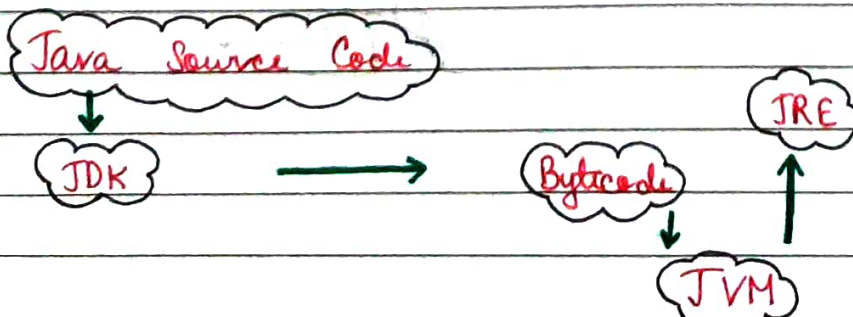 Java Source Code
JRE
JDK
Bytecode
JVM